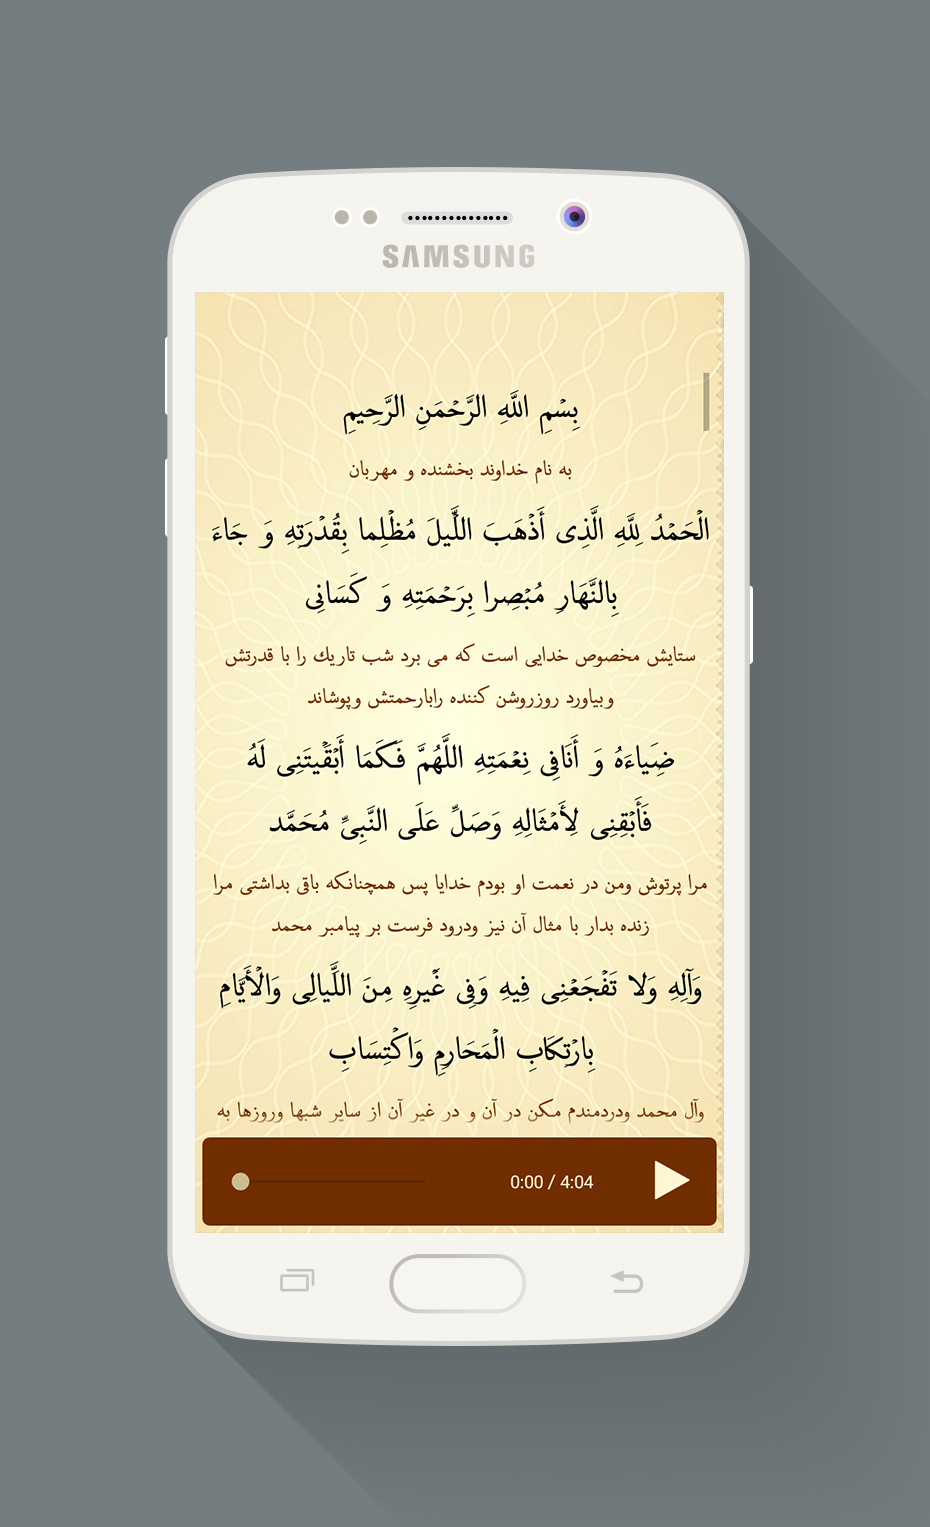 SAMSUNG
بِسْمِ اللَّهِ الرَّحْمَنِ الرَّحِيمِ
به نام خداوند بخشنده و مهربان
الْحَمْدُ لِلَّهِ الَّذِی أَذْهَبَ اللَّيْلَ مُظْلِما بِقُدْرَتِهِ وَ جَاءَ
بِالنَّهَارِ مُبْصِرا بِرَحْمَتِهِ وَ كَسَانِی
ستایش مخصوص خدایی است که می برد شب تاریك را با قدرتش
وبیاورد روزروشن کننده رابارحمتش وپوشاند
ضِيَاءَهُ وَ أَنَافِی نِعْمَتِهِ اللَّهُمَّ فَكَمَا أَبْقَيْتَنِی لَهُ
فَأَبْقِنِی لِأَمْثَالِهِ وَصَلِّ عَلَی النَّبِیِّ مُحَمَّد
مرا پرتوش ومن در نعمت او بودم خدایا پس همچنانکه باقی بداشتی مرا
زنده بدار با مثال آن نیز ودرود فرست بر پیامبر محمد
وَآلِهِ وَلا تَفْجَعْنِی فِيهِ وَفِی غَيْرِهِ مِنَ اللَّيالِی وَالْأَيَّامِ
بِارْتِكَابِ الْمَحَارِمِ وَاكْتِسَابِ
وآل محمد ودردمندم مکن در آن و در غیر آن از سایر شبها وروزها به
0:00 / 4:04